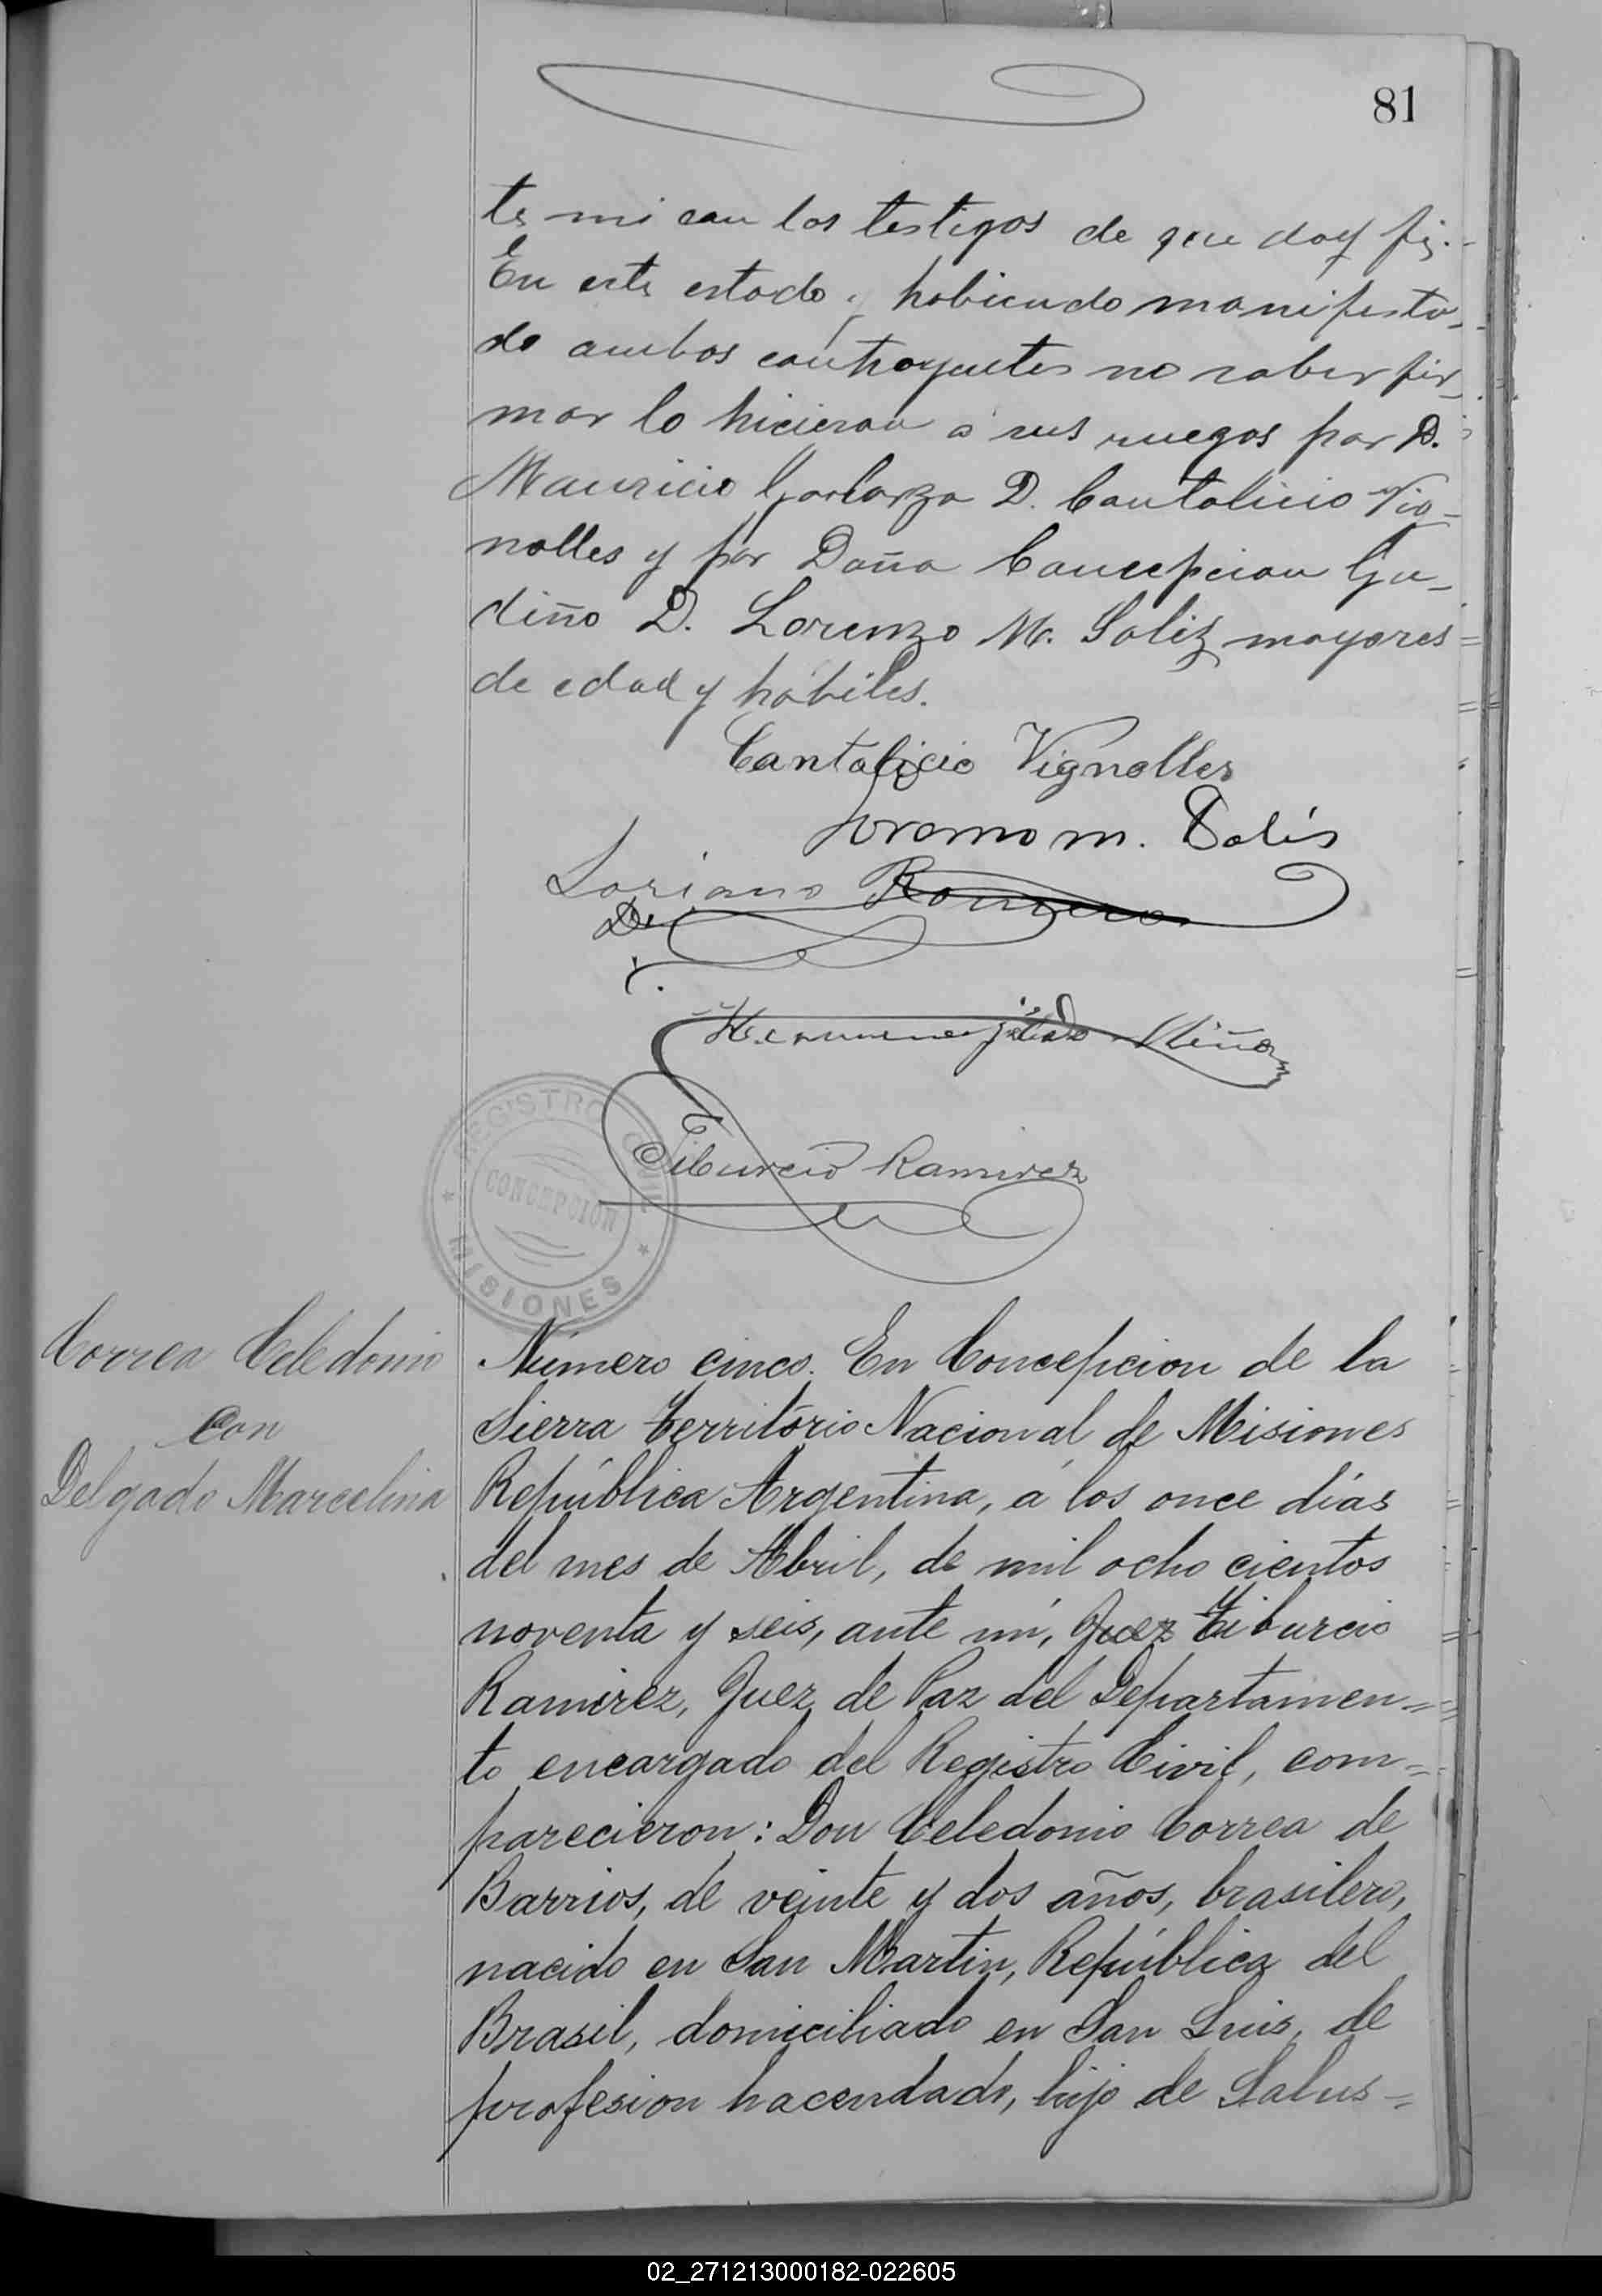 81
te mi con los testigos de que doy fé.-
En este estado y habiendo manifesta-
do ambos contrayentes no saber fir-
mar lo hicieron á sus ruegos por D.
Mauricio Galarza D. Cantalicio Vig-
nolles y por Doña Concepcion Gu-
diño D. Lorenzo M. Soliz mayores
de edad y hábiles.
Cantalicio Vignolles
Lorenso m. Solis
Loriano Romero
Hermenejildo Niño
Tiburcio Ramirez
REGISTRO CIVIL
CONCEPCION
MISIONES
Correa Celedonio
con
Delgado Marcelina
Número cinco. En Concepcion de la
Sierra Territorio Nacional de Misiones
República Argentina, á los once días
del mes de Abril, de mil ocho cientos
noventa y seis, ante mí, Juez Tiburcio
Ramirez, Juez de Paz del Departamen=
to encargado del Registro Civil, com=
parecieron: Don Celedonio Correa de
Barrios, de veinte y dos años, brasilero,
nacido en San Martin, República del
Brasil, domiciliado en San Luis, de
profesion hacendado, hijo de Salus=
02_271213000182-022605